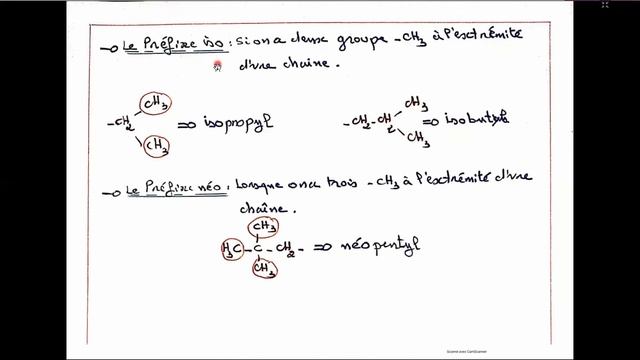 → Le Préfixe iso : Si on a deux groupe -CH3 à l'extrémité
d'une chaine.
CH3
-CH2 ⇒ isopropyl
CH3
CH3
-CH2-CH2 ⇒ isobutyl
CH3
→ Le Préfixe néo : Lorsque on a trois -CH3 à l'extrémité d'une
chaîne.
CH3
H3C-C-CH2- ⇒ néopentyl
CH3
Scanné avec CamScanner